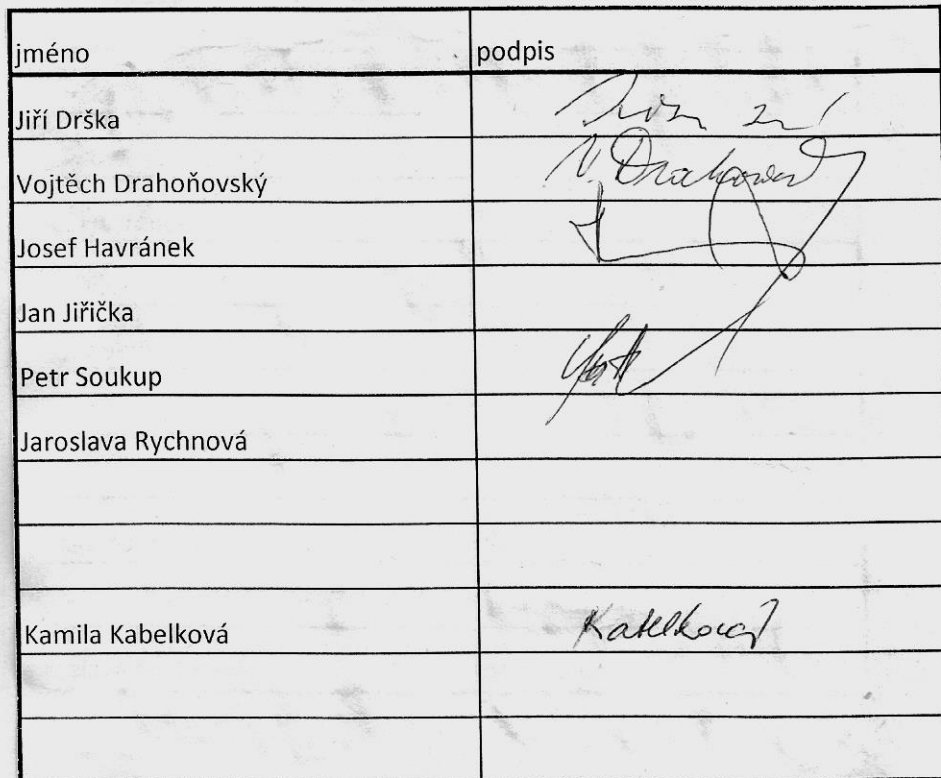 jméno podpis
Jiří Drška
Vojtěch Drahoňovský V. Drahoňovský
Josef Havránek
Jan Jiřička
Petr Soukup
Jaroslava Rychnová
Kamila Kabelková Kabelková